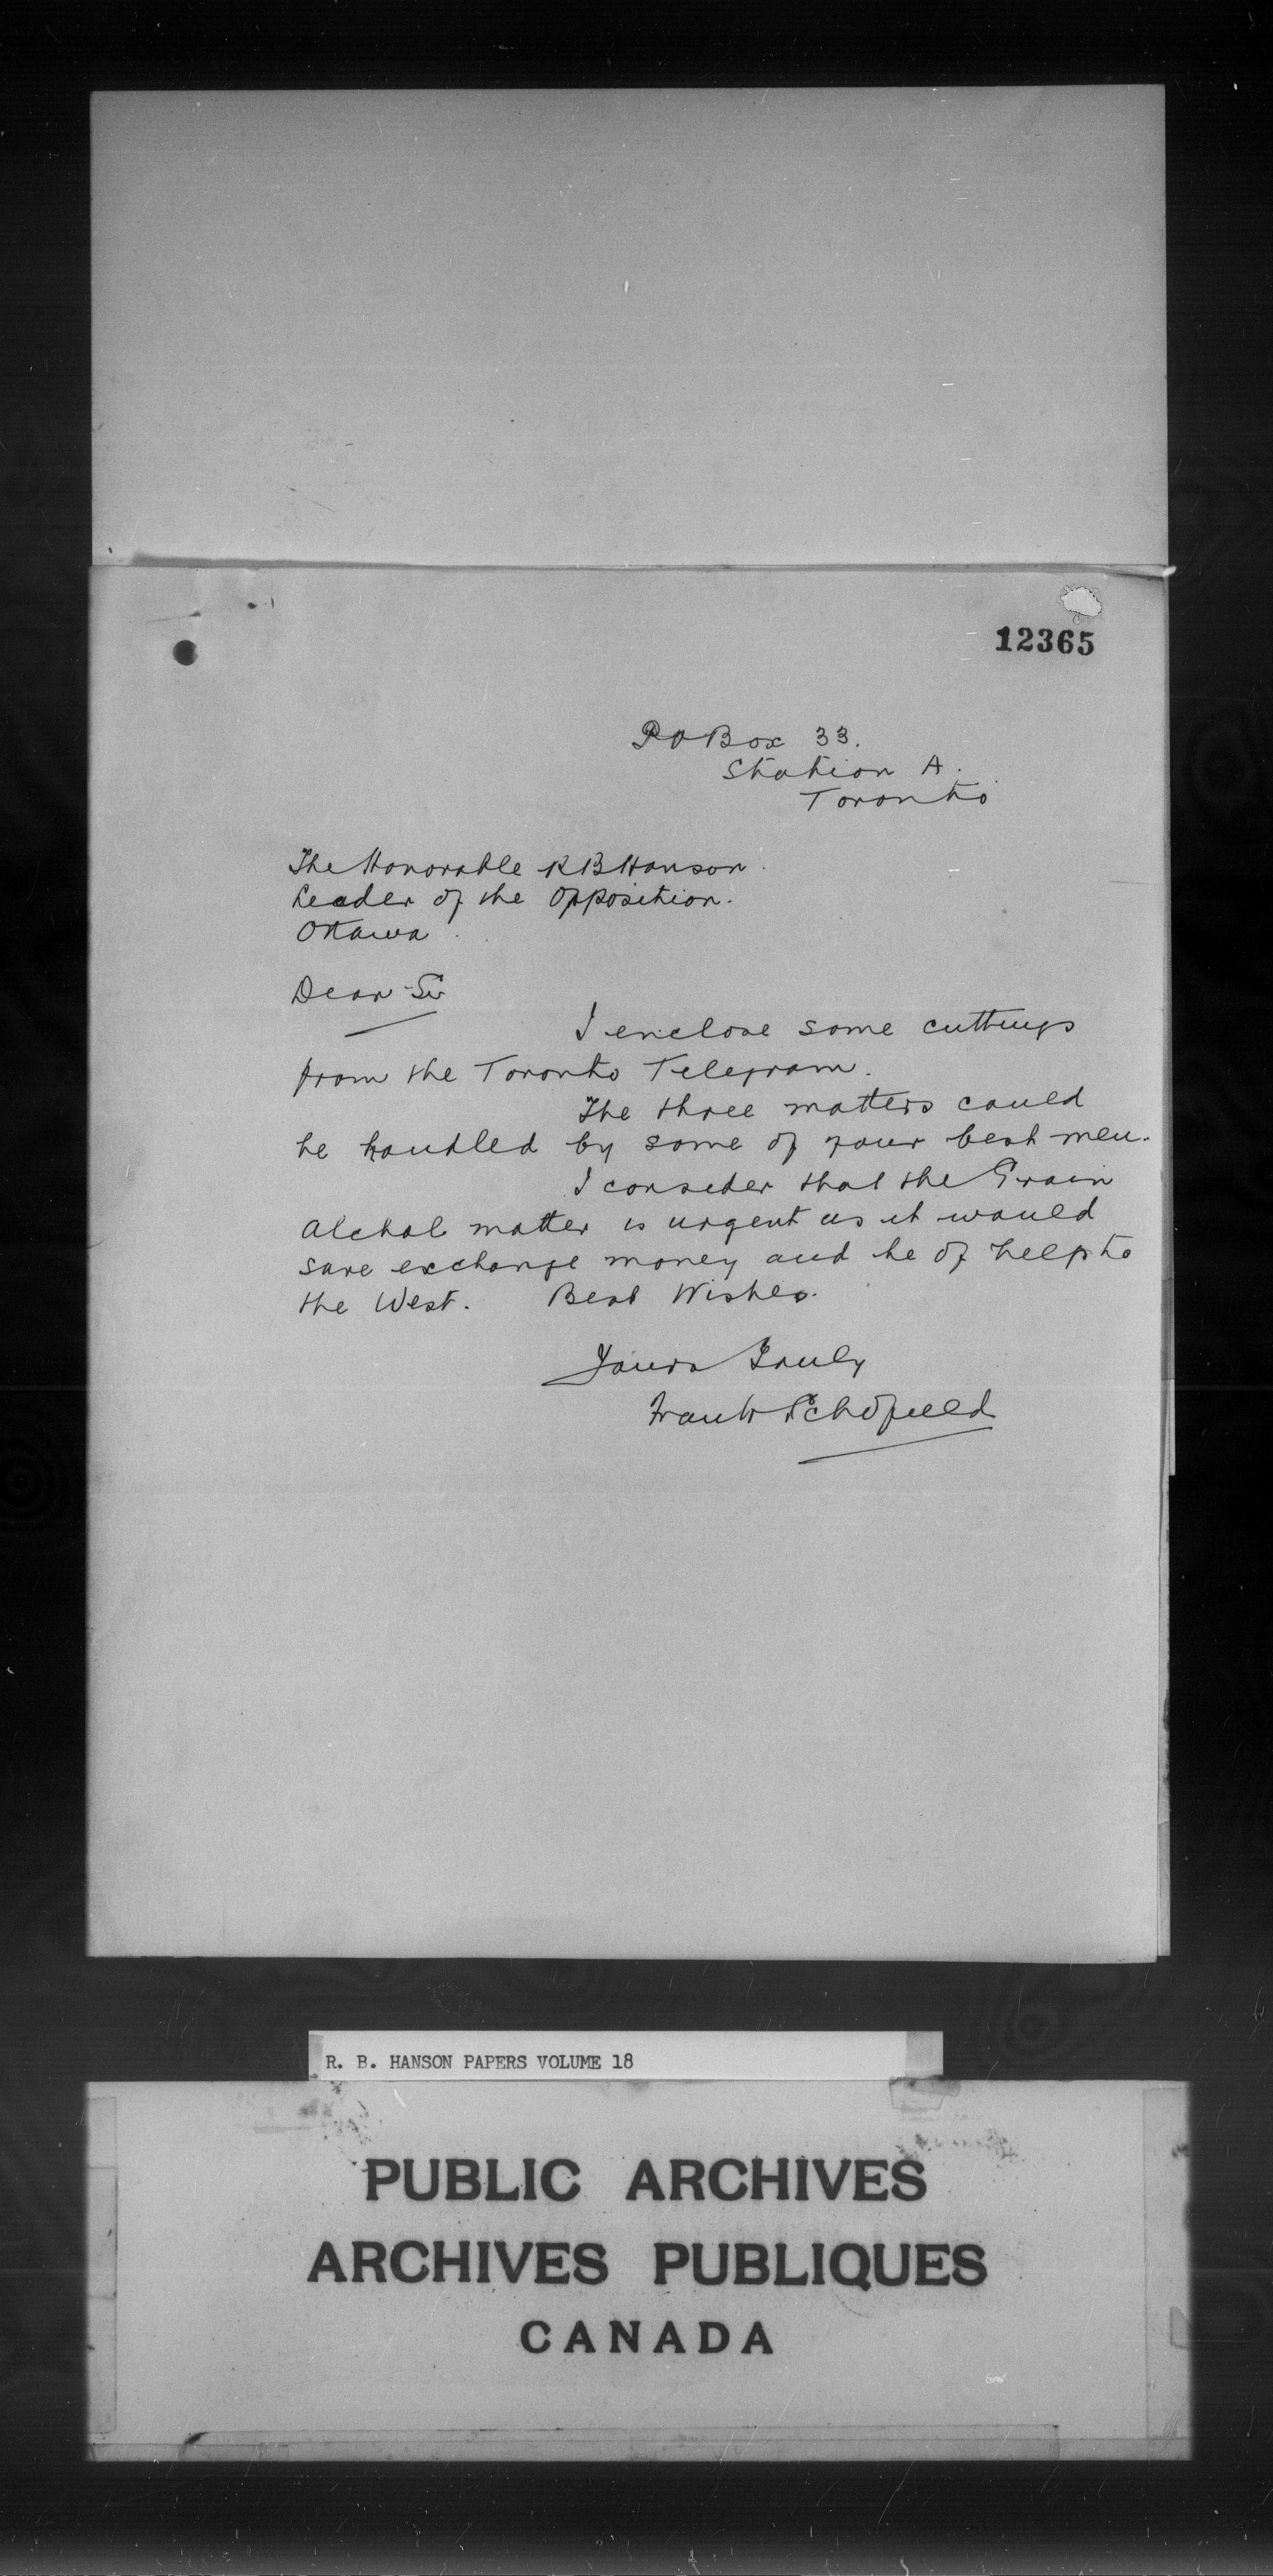 12365
P O Box 33.
Station A.
Toronto
The Honorable R B Hanson.
Leader of the Opposition.
Ottawa.
Dear Sir
I enclose some cuttings
from the Toronto Telegram.
The three matters could
be handled by some of your best men.
I consider that the Grain
Alchol matter is urgent as it would
save exchange money and be of help to
the West. Best Wishes.
Yours Truly
Frank Schofield
R. B. HANSON PAPERS VOLUME 18
PUBLIC ARCHIVES
ARCHIVES PUBLIQUES
CANADA